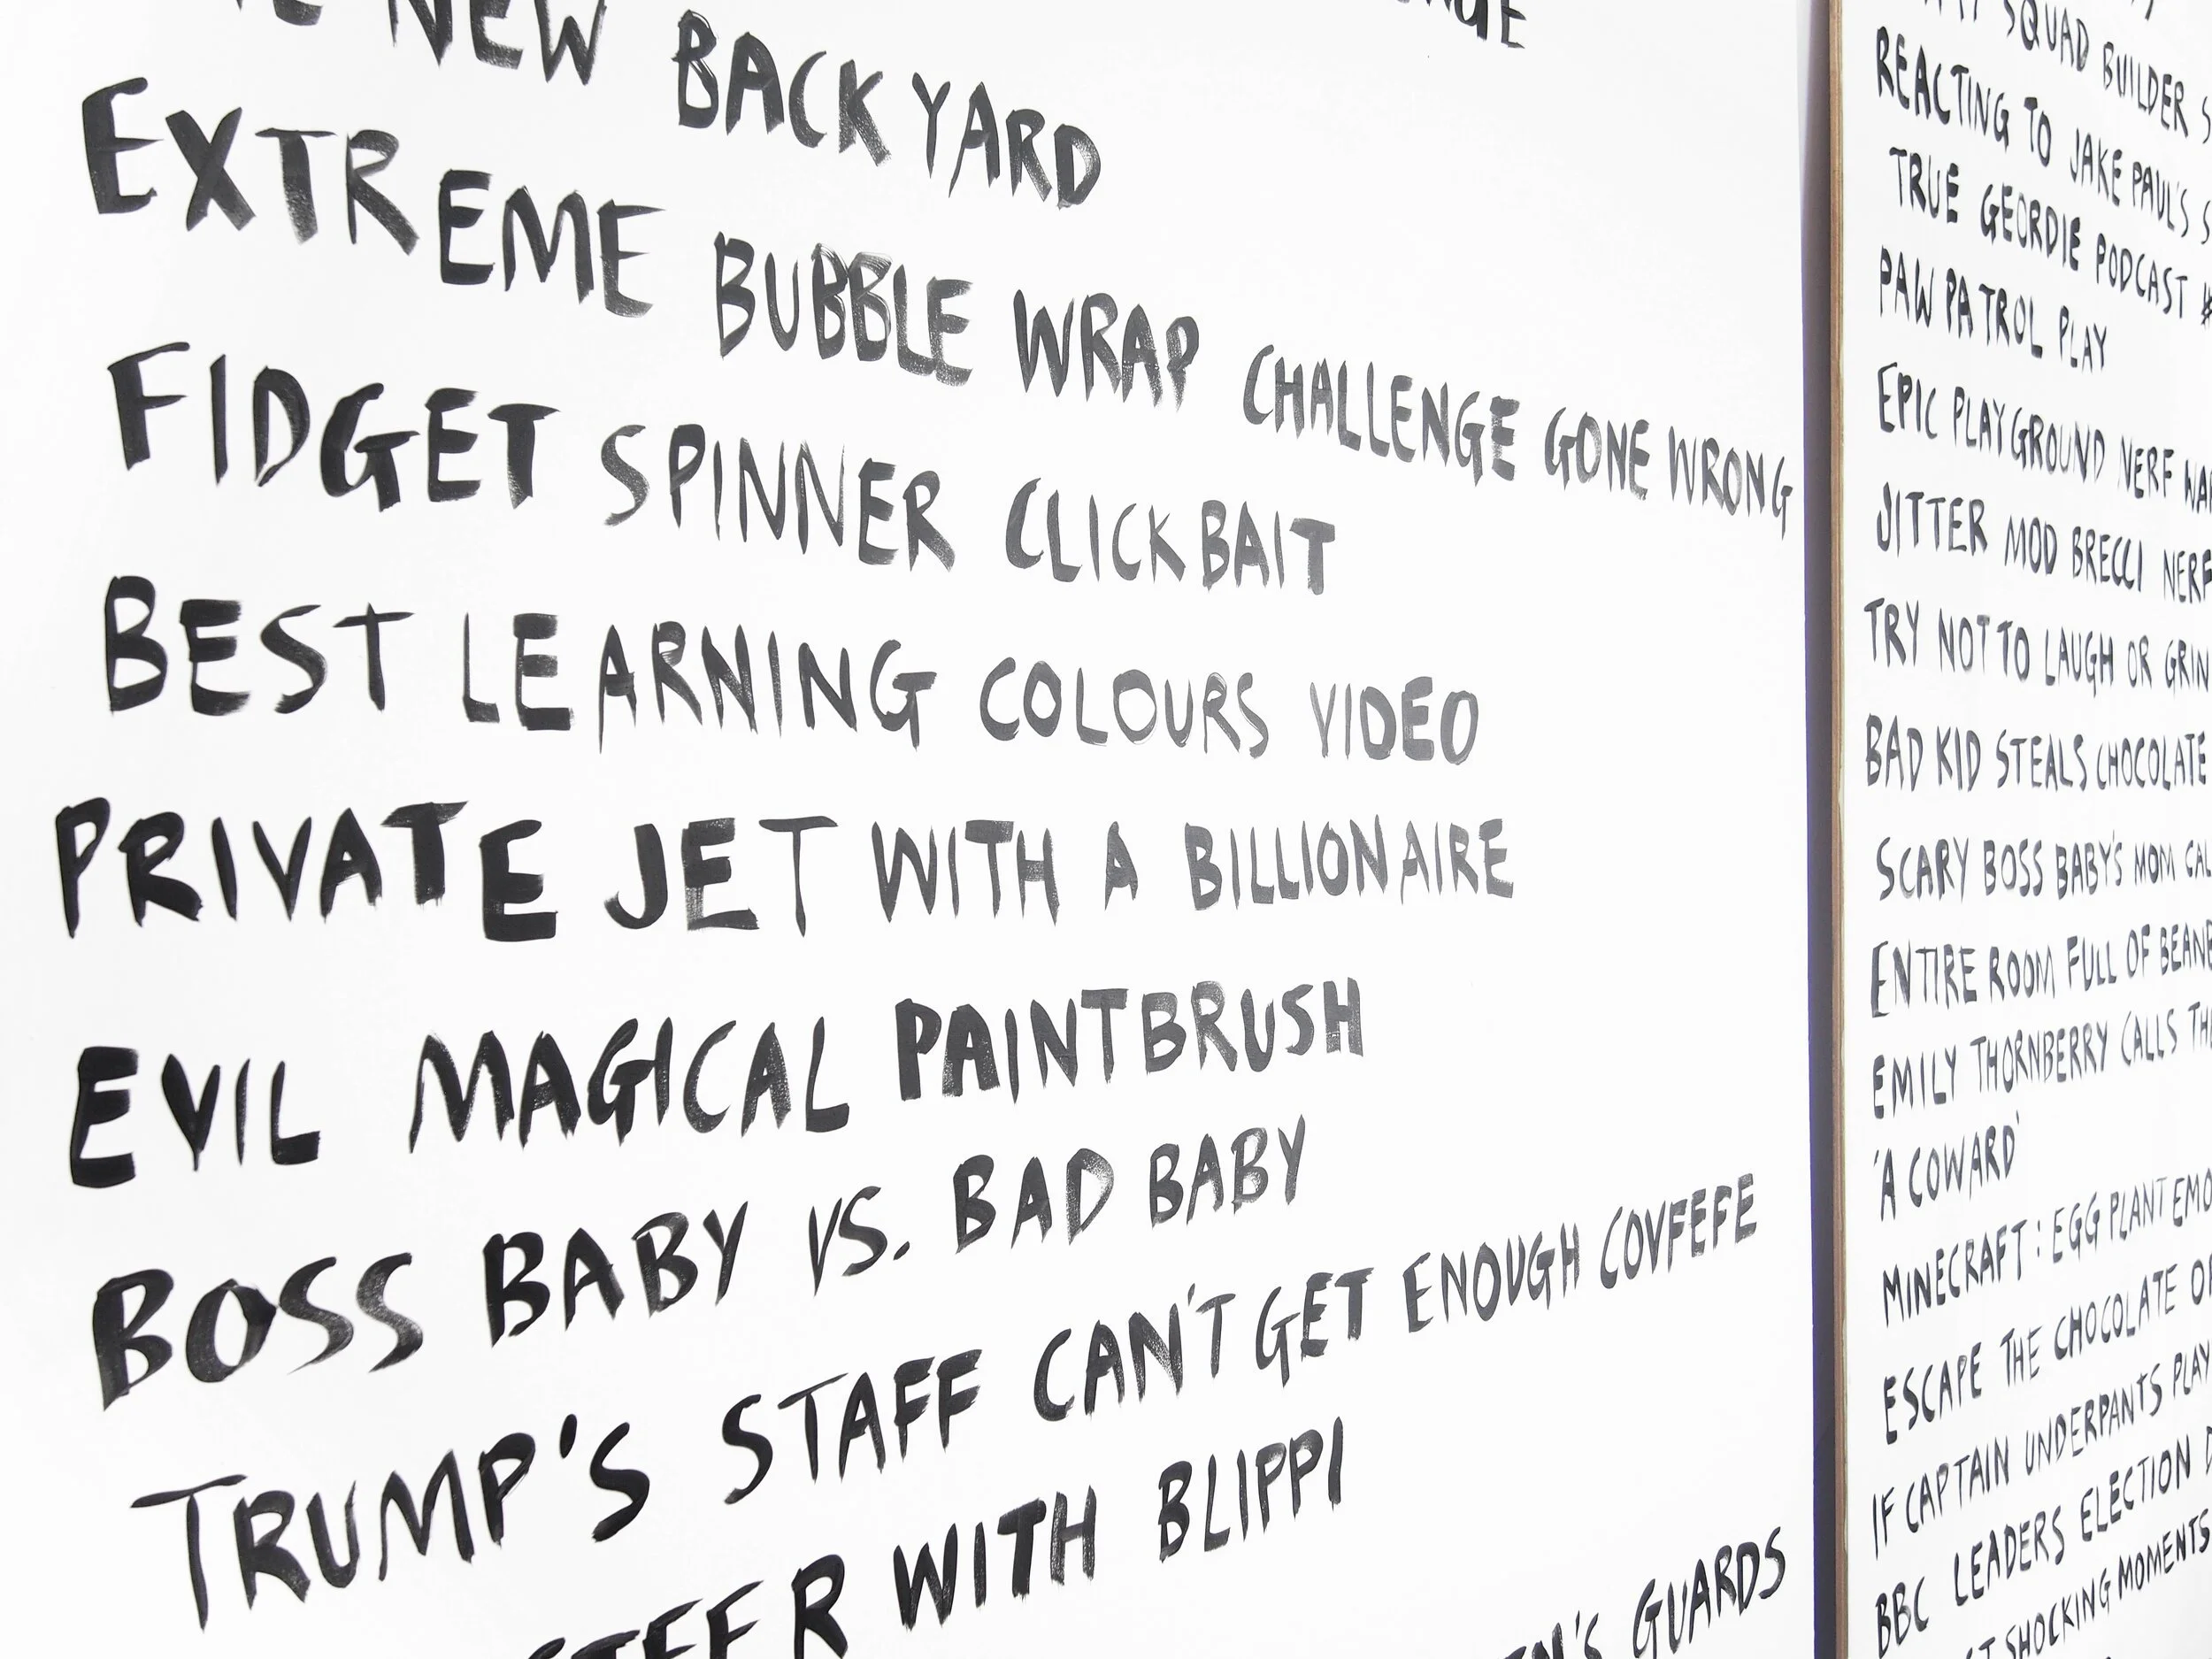 NEW BACKYARD
EXTREME BUBBLE WRAP CHALLENGE GONE WRONG
FIDGET SPINNER CLICKBAIT
BEST LEARNING COLOURS VIDEO
PRIVATE JET WITH A BILLIONAIRE
EVIL MAGICAL PAINTBRUSH
BOSS BABY VS. BAD BABY
TRUMP'S STAFF CAN'T GET ENOUGH COVFEFE
WITH BLIPPI
GUARDS
SQUAD BUILDER
REACTING TO JAKE PAUL'S
TRUE GEORDIE PODCAST #
PAW PATROL PLAY
EPIC PLAYGROUND NERF
JITTER MOD BRECCI NERF
TRY NOT TO LAUGH OR GRIN
BAD KID STEALS CHOCOLATE
SCARY BOSS BABY'S MOM
ENTIRE ROOM FULL OF
EMILY THORNBERRY CALLS
'A COWARD'
MINECRAFT: EGGPLANT
ESCAPE THE CHOCOLATE
IF CAPTAIN UNDERPANTS
BBC LEADERS ELECTION
SHOCKING MOMENTS